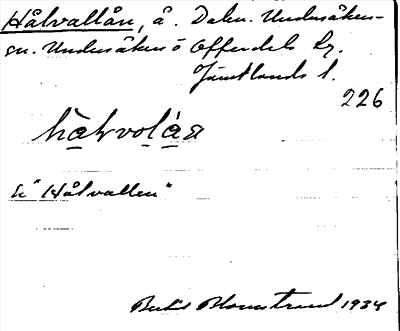 Hålvallån, å. Dalen. Undersåkers-
sn. Undersåkers o Offerdals tg.
Jämtlands l.
226
hàłvolàa
"Hålvallen"
Bertil Blomstrand 1934